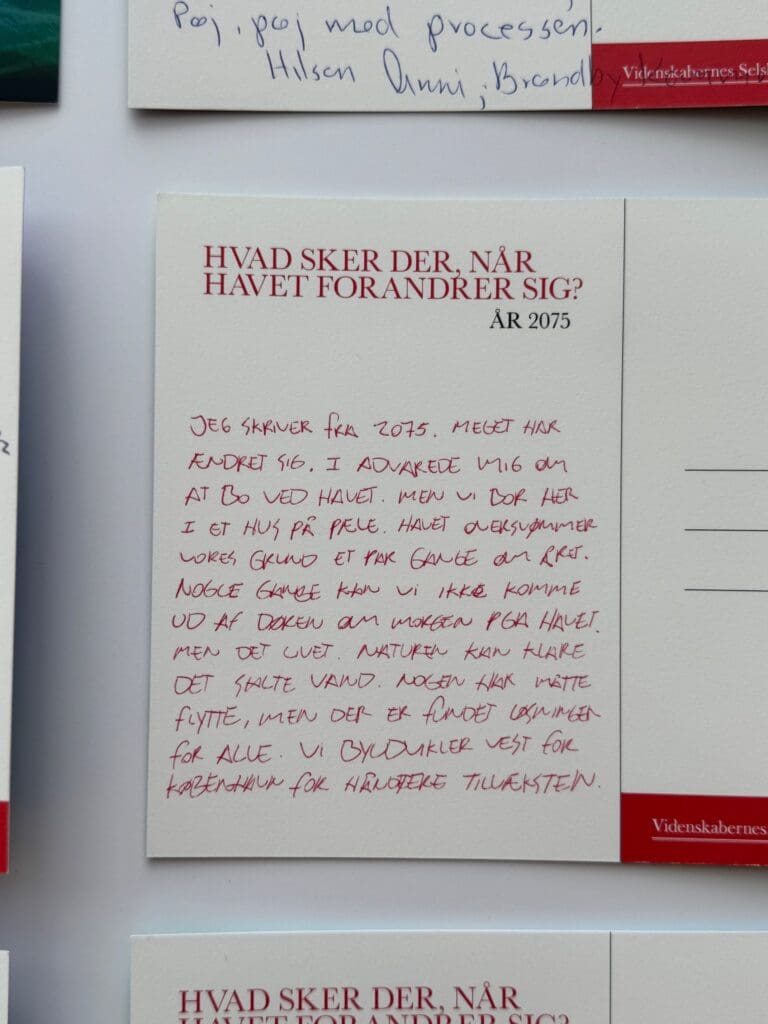 Pøj, pøj med processen.
Hilsen Anni, Brøndby
Videnskabernes Selsk
HVAD SKER DER, NÅR
HAVET FORANDRER SIG?
ÅR 2075
JEG SKRIVER FRA 2075. MEGET HAR
ÆNDRET SIG. I ADVAREDE MIG OM
AT BO VED HAVET. MEN VI BOR HER
I ET HUS PÅ PÆLE. HAVET OVERSVØMMER
VORES GRUND ET PAR GANGE OM ÅRET.
NOGLE GANGE KAN VI IKKE KOMME
UD AF DØREN OM MORGEN PGA HAVET.
MEN DET LIVET. NATUREN KAN KLARE
DET SALTE VAND. NOGEN HAR MÅTTE
FLYTTE, MEN DER ER FUNDET LØSNINGER
FOR ALLE. VI BYUDVIKLER VEST FOR
KØBENHAVN FOR HÅNDTERE TILVÆKSTEN.
Videnskabernes
HVAD SKER DER, NÅR
HAVET FORANDRER SIG?